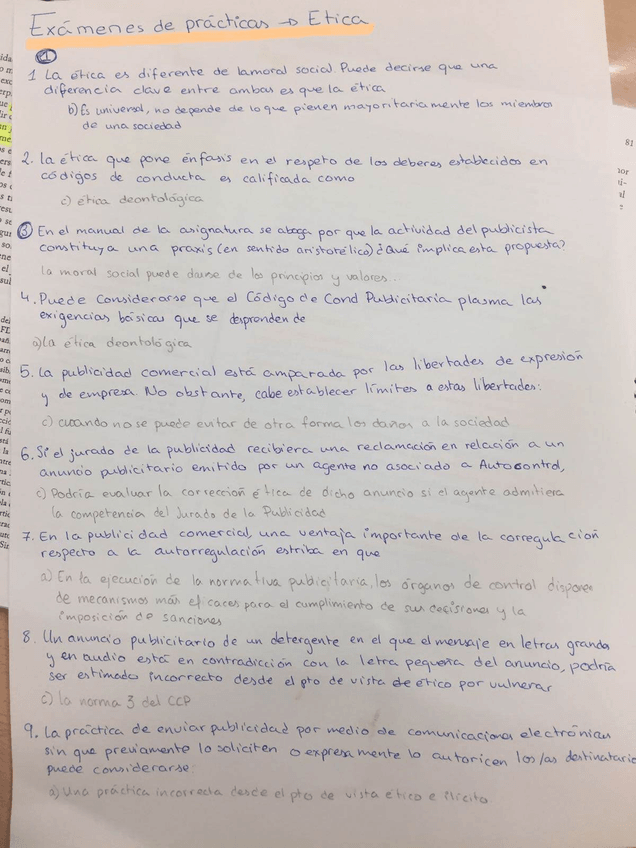 Exámenes de prácticas → Etica
①
1 La ética es diferente de lamoral social. Puede decirse que una
diferencia clave entre ambas es que la ética
b) Es universal, no depende de lo que pienen mayoritariamente los miembros
de una sociedad
81
2. La ética que pone énfasis en el respeto de los deberes establecidos en
códigos de conducta es calificada como
c) ética deontológica
③ En el manual de la asignatura se aboga por que la actividad del publicista
constituya una praxis (en sentido aristotélico) ¿Qué implica esta propuesta?
la moral social puede darse de los principios y valores...
4. Puede considerarse que el Código de Cond Publicitaria plasma las
exigencias básicas que se desprenden de
a) La ética deontológica
5. La publicidad comercial está amparada por las libertades de expresión
y de empresa. No obstante, cabe establecer límites a estas libertades:
c) cuando no se puede evitar de otra forma los daños a la sociedad
6. Si el jurado de la publicidad recibiera una reclamación en relación a un
anuncio publicitario emitido por un agente no asociado a Autocontrol,
c) Podría evaluar la corrección ética de dicho anuncio si el agente admitiera
la competencia del Jurado de la Publicidad
7. En la publicidad comercial, una ventaja importante de la corregulación
respecto a la autorregulación estriba en que
a) En la ejecución de la normativa publicitaria, los órganos de control disponen
de mecanismos más eficaces para el cumplimiento de sus decisiones y la
imposición de sanciones
8. Un anuncio publicitario de un detergente en el que el mensaje en letras grande
y en audio está en contradicción con la letra pequeña del anuncio, podría
ser estimado incorrecto desde el pto de vista de ético por vulnerar
c) la norma 3 del CCP
9. La práctica de enviar publicidad por medio de comunicaciones electrónicas
sin que previamente lo soliciten o expresamente lo autoricen los/as destinatario
puede considerarse:
a) Una práctica incorrecta desde el pto de vista ético e ilícito